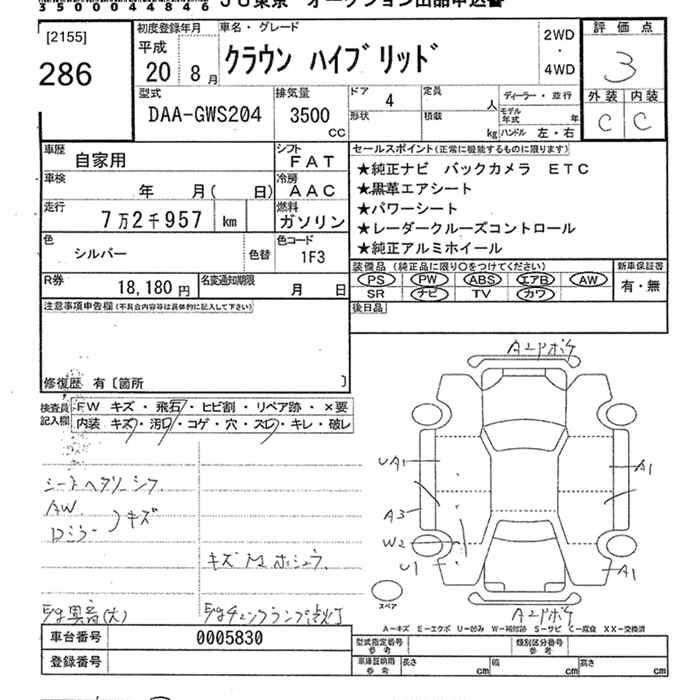 35000444846 JU東京 オークション出品申込書
[2155]
286
初度登録年月
平成
20 8月
車名・グレード
クラウン ハイブリッド
2WD
・
4WD
評価点
3
外装 内装
C C
型式
DAA-GWS204
排気量
3500
CC
ドア 4
形状
定員 人
積載 kg
ディーラー・並行
モデル年式 年
ハンドル 左・右
車歴
自家用
シフト
FAT
車検
年 月( 日)
冷房
AAC
走行
7万2千957 km
燃料
ガソリン
色
シルバー
色替
色コード
1F3
R券
18,180円
名変通知期限
月 日
セールスポイント(正常に機能するものに限ります)
★純正ナビ バックカメラ ETC
★黒革エアシート
★パワーシート
★レーダークルーズコントロール
★純正アルミホイール
装備品(純正品に限り○をつけてください)
PS PW ABS エアB AW
SR ナビ TV カワ
新車保証書
有・無
後日品
注意事項申告欄(不具合内容等は具体的に記入して下さい)
修復歴 有〔箇所 〕
検査員記入欄
FW キズ・飛石・ヒビ割・リペア跡・×要
内装 キズ・汚レ・コゲ・穴・スレ・キレ・破レ
シートヘタリ シワ
AW
ロミラー )キズ
キズ M ホシュウ
異音(大)
チェックランプ点灯
Aエアドボケ
UA1
A1
A3
W2
U1
A1
スペア
Aエアドボケ
A-キズ E-エクボ U-凹み W-補修跡 S-サビ C-腐食 XX-交換済
車台番号 0005830
登録番号
型式指定番号
参考
類別区分番号
参考
車庫証明用
参考
長さ cm
幅 cm
高さ cm